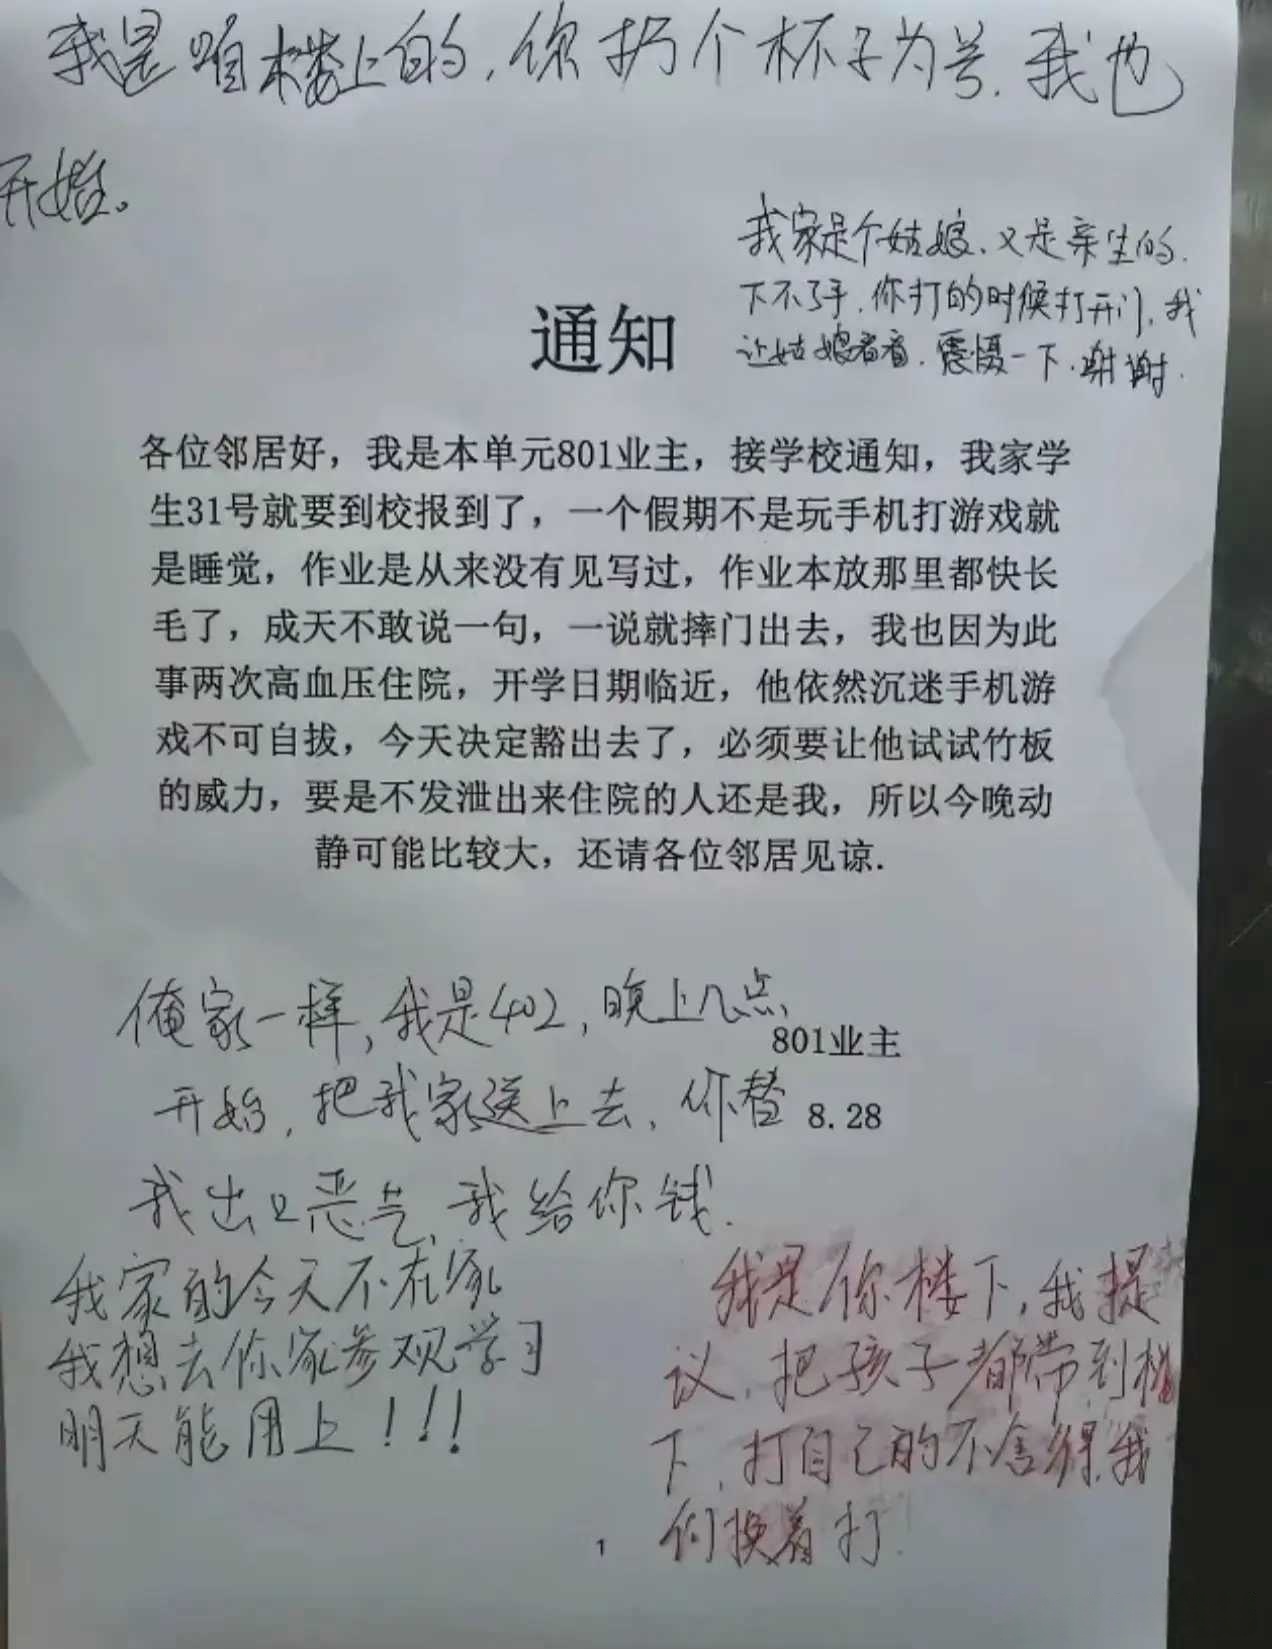 我是咱楼上的,你扔个杯子为号.我也
开始。
我家是个姑娘、又是亲生的.
下不了手,你打的时候打开门,我
让姑娘看看.震慑一下.谢谢.
通知
各位邻居好，我是本单元801业主，接学校通知，我家学
生31号就要到校报到了，一个假期不是玩手机打游戏就
是睡觉，作业是从来没有见写过，作业本放那里都快长
毛了，成天不敢说一句，一说就摔门出去，我也因为此
事两次高血压住院，开学日期临近，他依然沉迷手机游
戏不可自拔，今天决定豁出去了，必须要让他试试竹板
的威力，要是不发泄出来住院的人还是我，所以今晚动
静可能比较大，还请各位邻居见谅.
801业主
8.28
俺家一样,我是402,晚上几点
开始,把我家送上去,你替
我出口恶气,我给你钱.
我家的今天不在家
我想去你家参观学习
明天能用上!!!
我是你楼下,我提
议,把孩子都带到楼
下,打自己的不舍得,我
们换着打!
1